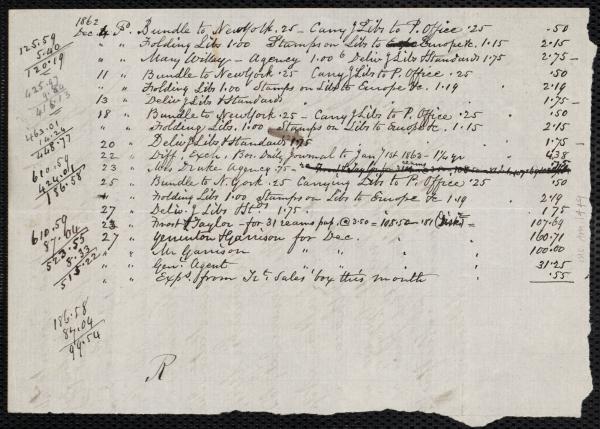 1862
Dec 4 Pd. Bundle to New York .25 - Carryg Libs to P. Office .25 .50
" " Folding Libs 1.00 Stamps on Libs to Europe &c. 1.15 2.15
" " Mary Willey - Agency 1.00 Delivg Libs & Standards 1.75 2.75
11 " Bundle to New York .25 Carryg Libs to P. Office .25 .50
" " Folding Libs 1.00 Stamps on Libs to Europe &c. 1.19 2.19
13 " Delivg Libs & Standards 1.75
18 " Bundle to New York .25 - Carryg Libs to P. Office .25 .50
" " Folding Libs. 1.00 Stamps on Libs to Europe &c. 1.15 2.15
20 " Delivg Libs & Standards 1.75 1.75
22 " Diff. Exch. Bos. Daily Journal to Jany 1st 1863 - 1/4 yr 4.38
23 " Mrs Drake Agency .75 .75
25 " Bundle to N. York .25 Carrying Libs to P. Office .25 .50
" " Folding Libs 1.00 Stamps on Libs to Europe &c 1.19 2.19
27 " Delivg Libs & Stds 1.75 1.75
23 " Frost & Taylor - for 31 reams pap. @ 3.50 = 108.50 107.69
27 " Yerrinton & Garrison for Dec. 160.71
" " Mr Garrison " " 100.00
" " Genl. Agent " " 31.25
" " Exps. from Frt. Sales' box this month .55
125.59
5.40
120.19
425.97
9.84
416.13
463.01
14.24
448.77
610.59
424.01
186.58
610.59
87.04
523.55
8.33
515.22
186.58
87.04
99.54
R